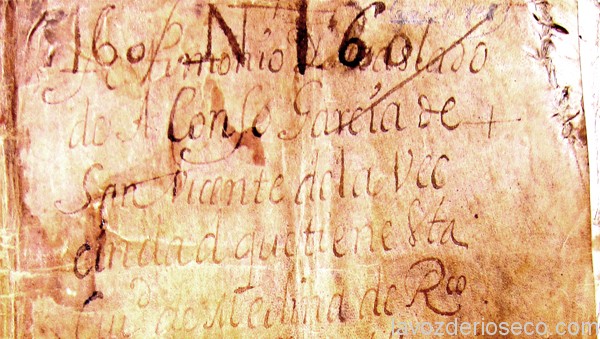 1605 N 160
Testimonio de traslado
do Alonso García de
San Vicente de la Vec
cindad que tiene Esta
Ciud de Medina de Rco
lavozderioseco.com